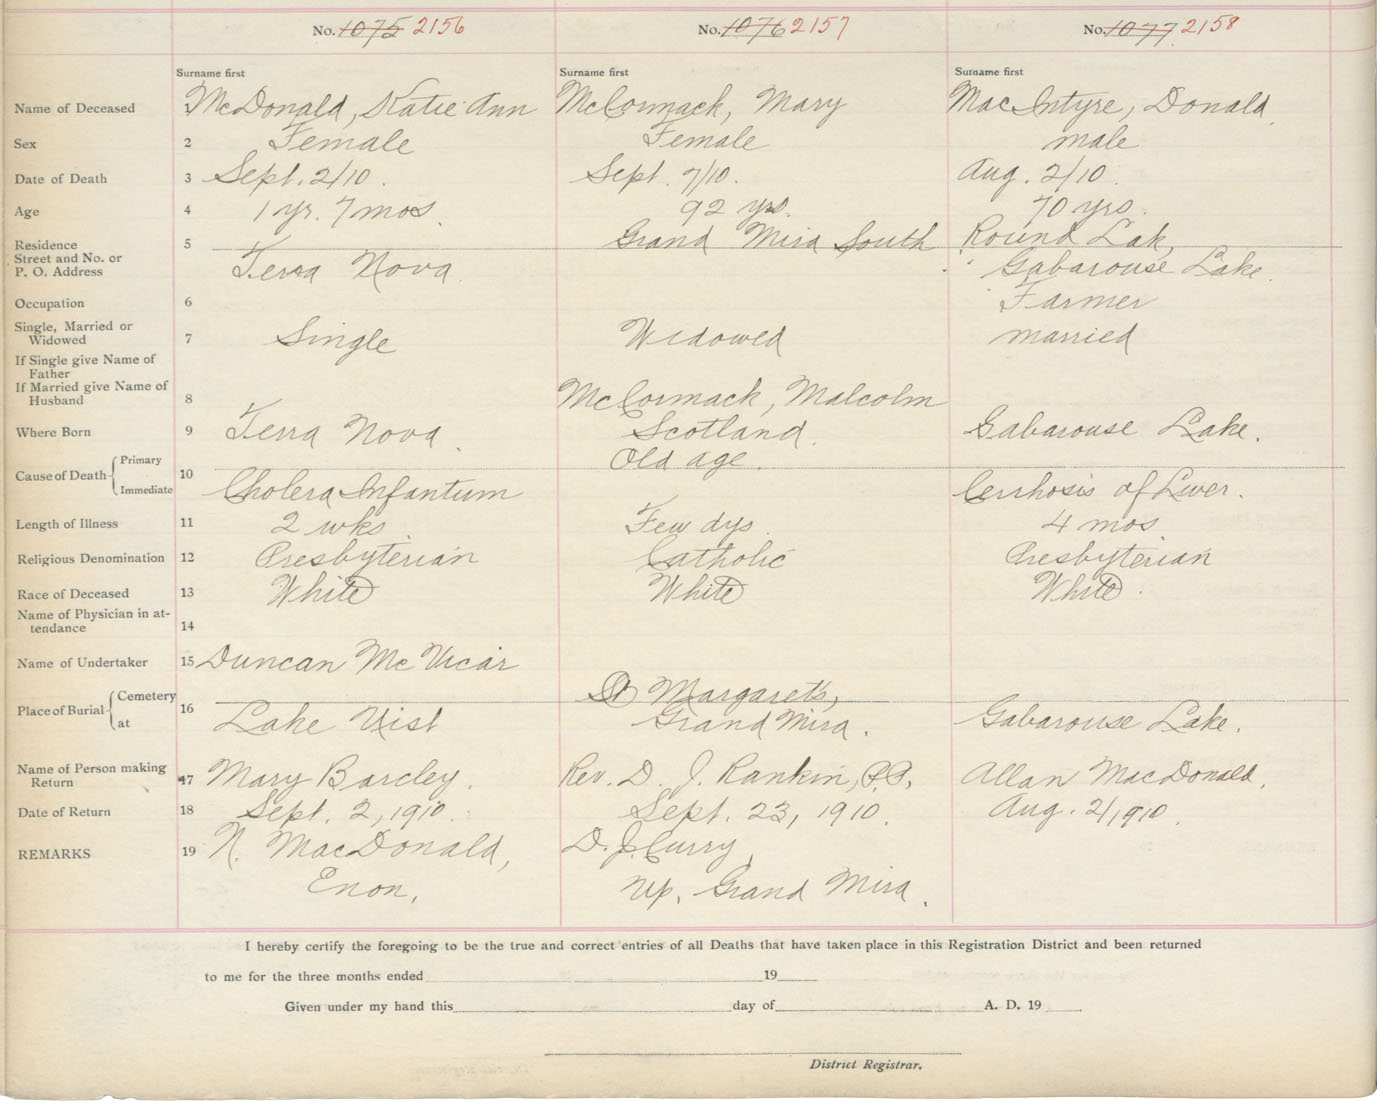 No. 1075 2156
No. 1076 2157
No. 1077 2158
Surname first
Surname first
Surname first
Name of Deceased 1 McDonald, Katie Ann
McCormack, Mary
MacIntyre, Donald
Sex 2 Female
Female
male
Date of Death 3 Sept. 2/10.
Sept. 7/10.
Aug. 2/10
Age 4 1 yr. 7 mos.
92 yrs.
70 yrs.
Residence
Street and No. or
P. O. Address 5 Terra Nova
Grand Mira South
Round Lak,
Gabarouse Lake.
Occupation 6
Farmer
Single, Married or
Widowed 7 Single
Widowed
married
If Single give Name of
Father
If Married give Name of
Husband 8
McCormack, Malcolm
Where Born 9 Terra Nova.
Scotland.
Gabarouse Lake.
Cause of Death Primary
Immediate 10 Cholera Infantum
Old age.
Cerrhosis of Liver.
Length of Illness 11 2 wks
Few dys.
4 mos
Religious Denomination 12 Presbyterian
Catholic
Presbyterian
Race of Deceased 13 White
White
White.
Name of Physician in at-
tendance 14
Name of Undertaker 15 Duncan McVicar
Place of Burial Cemetery
at 16 Lake Uist
St Margaret's,
Grand Mira.
Gabarouse Lake.
Name of Person making
Return 17 Mary Barcley.
Rev. D. J. Rankin, P.P.
Allan MacDonald,
Date of Return 18 Sept. 2, 1910.
Sept. 23, 1910.
Aug. 2/1910.
REMARKS 19 N. MacDonald,
Enon,
D. J. Curry,
Up. Grand Mira.
I hereby certify the foregoing to be the true and correct entries of all Deaths that have taken place in this Registration District and been returned
to me for the three months ended 19
Given under my hand this day of A. D. 19
District Registrar.